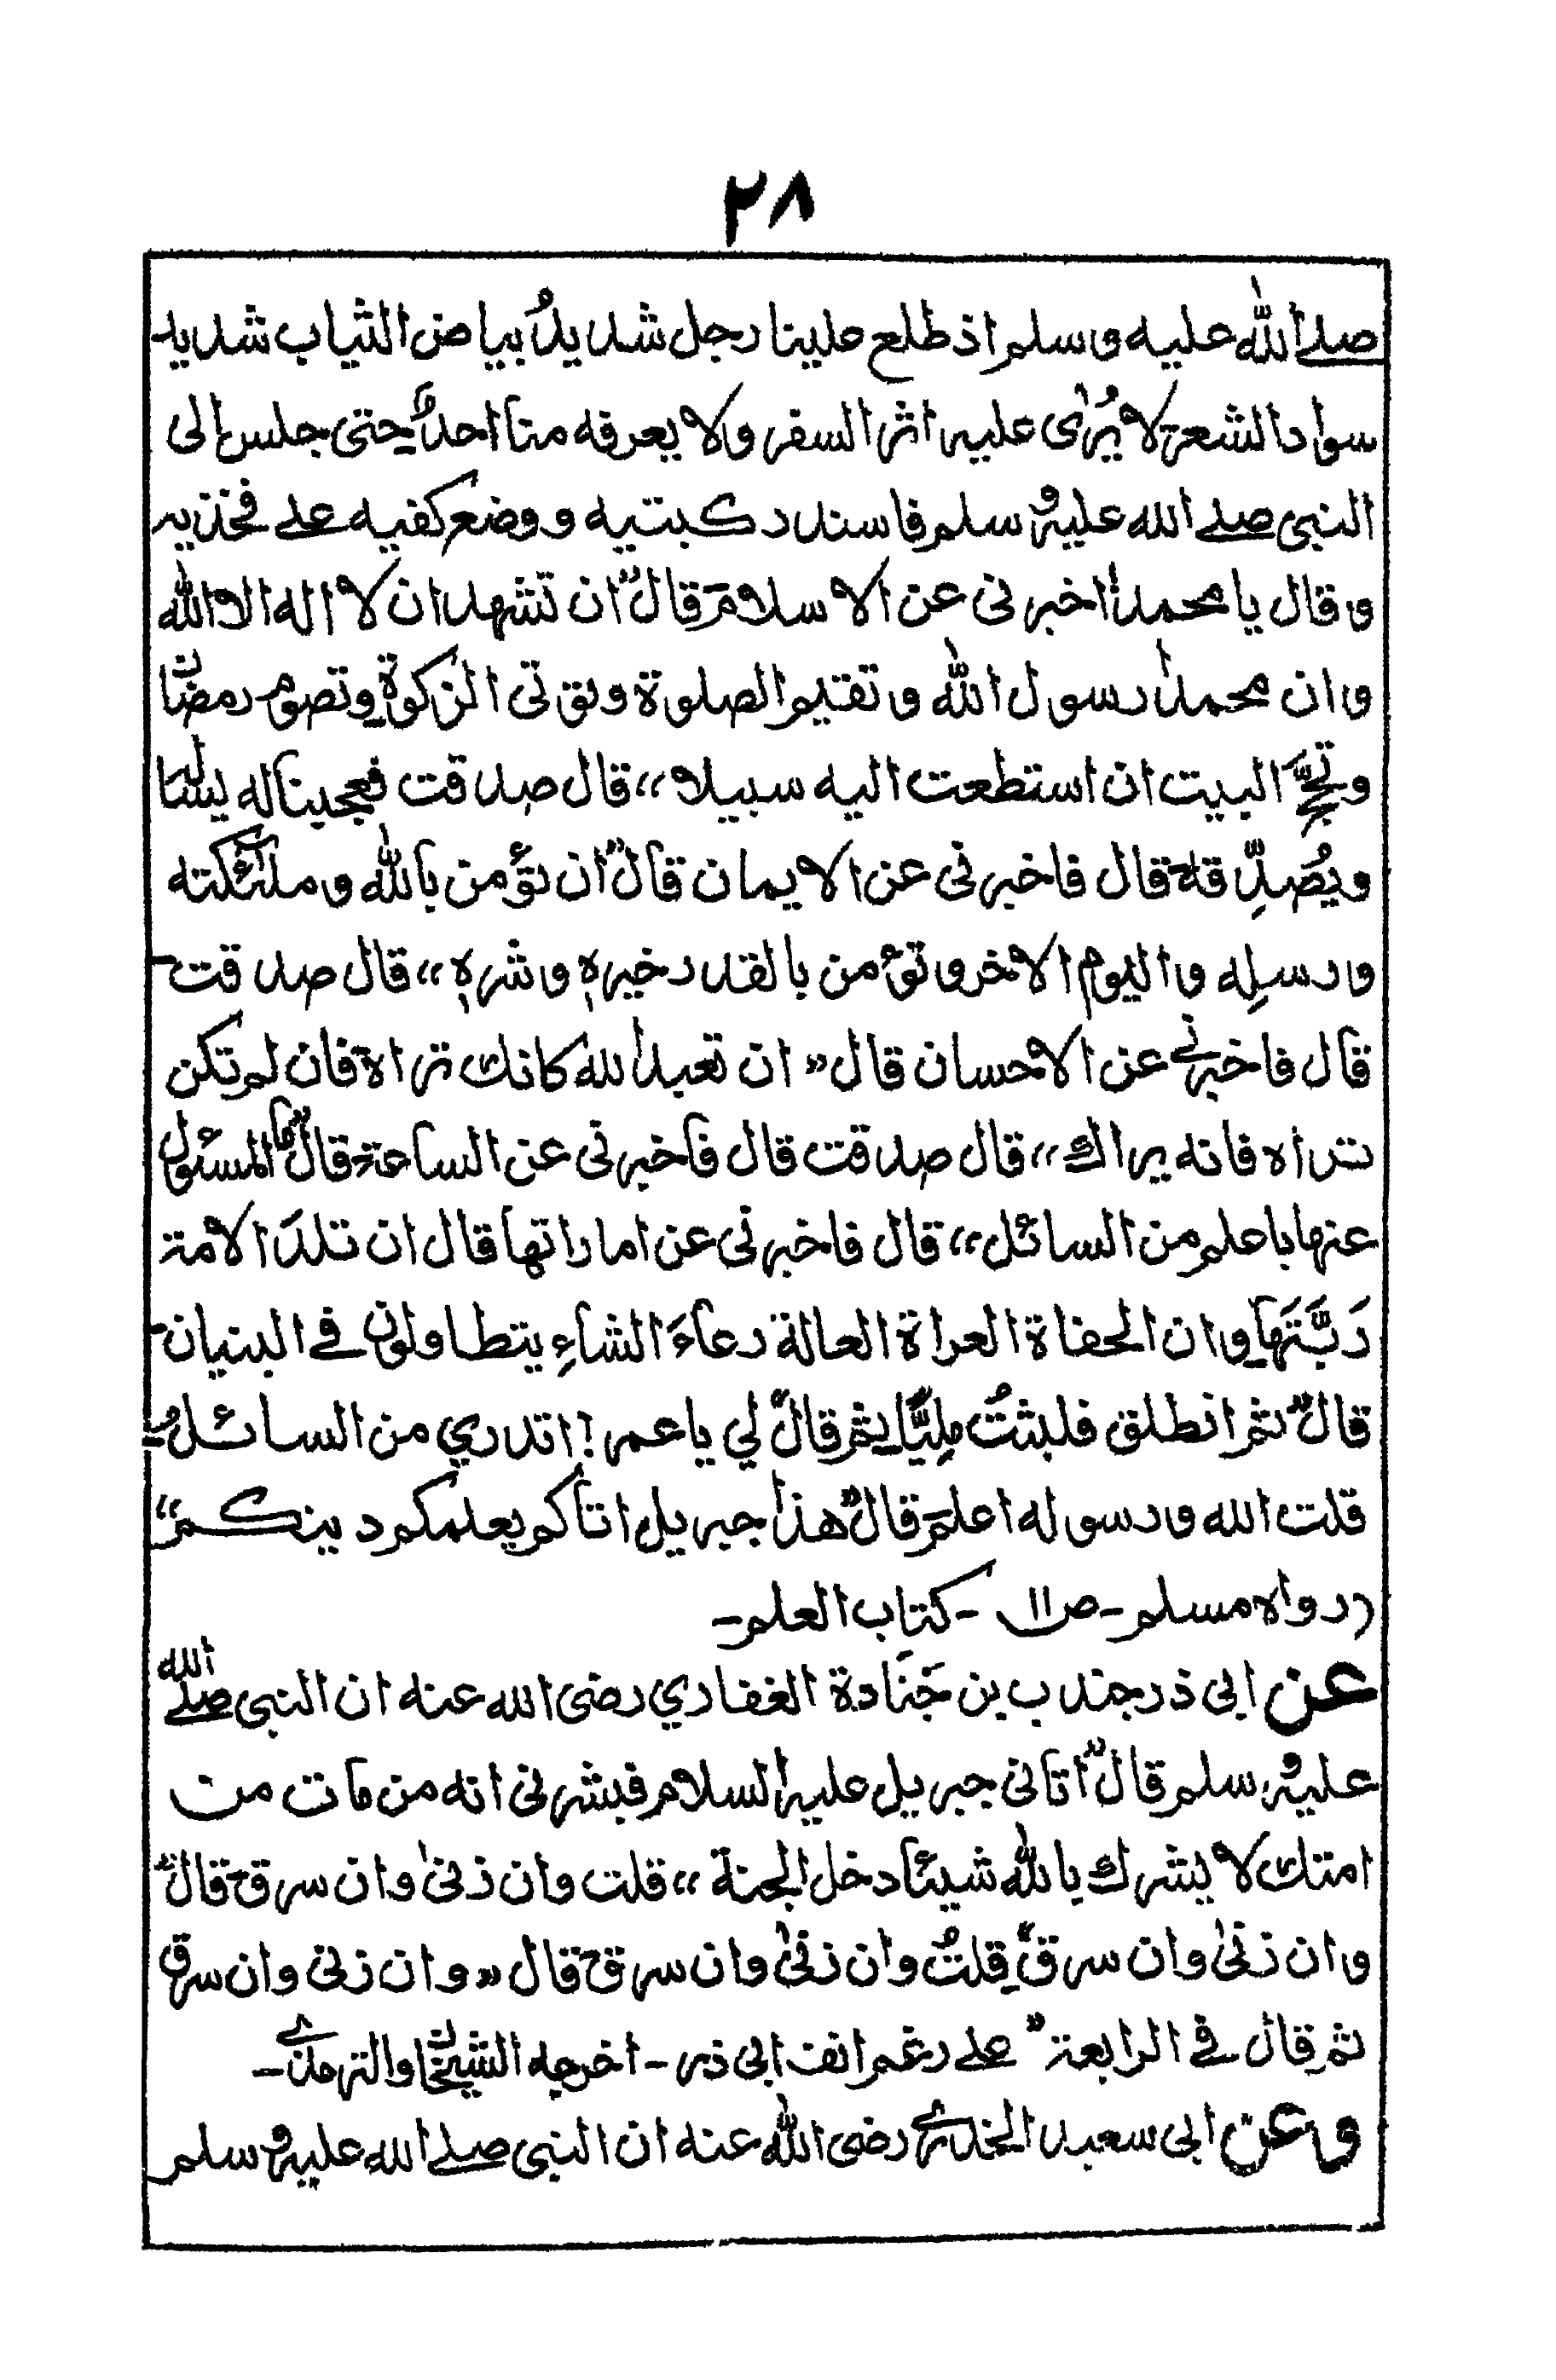 ٢٨
صلے اللہ علیہ وسلم اذ طلع علينا رجل شديدُ بياض الثياب شديد
سواد الشعر لا يُرٰى عليه اثر السفر ولا يعرفه منا احدٌ حتى جلس الى
النبى صلے الله عليه وسلم فاسند ركبتيه ووضع كفيه علے فخذيه
وقال يا محمد اخبرنى عن الاسلام قال "ان تشهد ان لا اله الا الله
وان محمدا رسول الله وتقيم الصلوة وتؤتى الزكوة وتصوم رمضان
وتحجَّ البيت ان استطعت اليه سبيلا" قال صدقت فعجبنا له يسأله
ويُصَدِّقه قال فاخبرنى عن الايمان قال "ان تؤمن بالله وملئكته
ورسلِه واليوم الاخر وتؤمن بالقدر خيرهٖ وشرهٖ" قال صدقت-
قال فاخبرنے عن الاحسان قال "ان تعبد الله كانك تراه فان لم تكن
تراه فانه يراك" قال صدقت قال فاخبرنى عن الساعة قال "ما المسئول
عنها باعلم من السائل" قال فاخبرنى عن اماراتها قال ان تلدَ الامة
رَبَّتَهَا وان الحفاة العراة العالة رعاءَ الشاءِ يتطاولون فے البنيان-
قال "ثم انطلق فلبثتُ مليًّا ثم قال لي يا عمر! اتدري من السائل"
قلت الله ورسوله اعلم قال "هذا جبريل اتاكم يعلمكم دينكم"
(رواه مسلم - ص ١١ - كتاب العلم-
عن ابى ذر جندب بن جَنَادة الغفاري رضى الله عنه ان النبى صلے الله
عليه وسلم قال "اتانى جبريل عليه السلام فبشرنى انه من مات من
امتك لا يشرك بالله شيئا دخل الجنة" قلت وان زنىٰ وان سرق قال "
وان زنىٰ وان سرق" قلتُ وان زنىٰ وان سرق قال "وان زنى وان سرق
ثم قال فے الرابعة" علے رغم انف ابى ذر - اخرجه الشيخان والترمذے-
وعن ابى سعيد الخدرے رضى الله عنه ان النبى صلے الله عليه وسلم